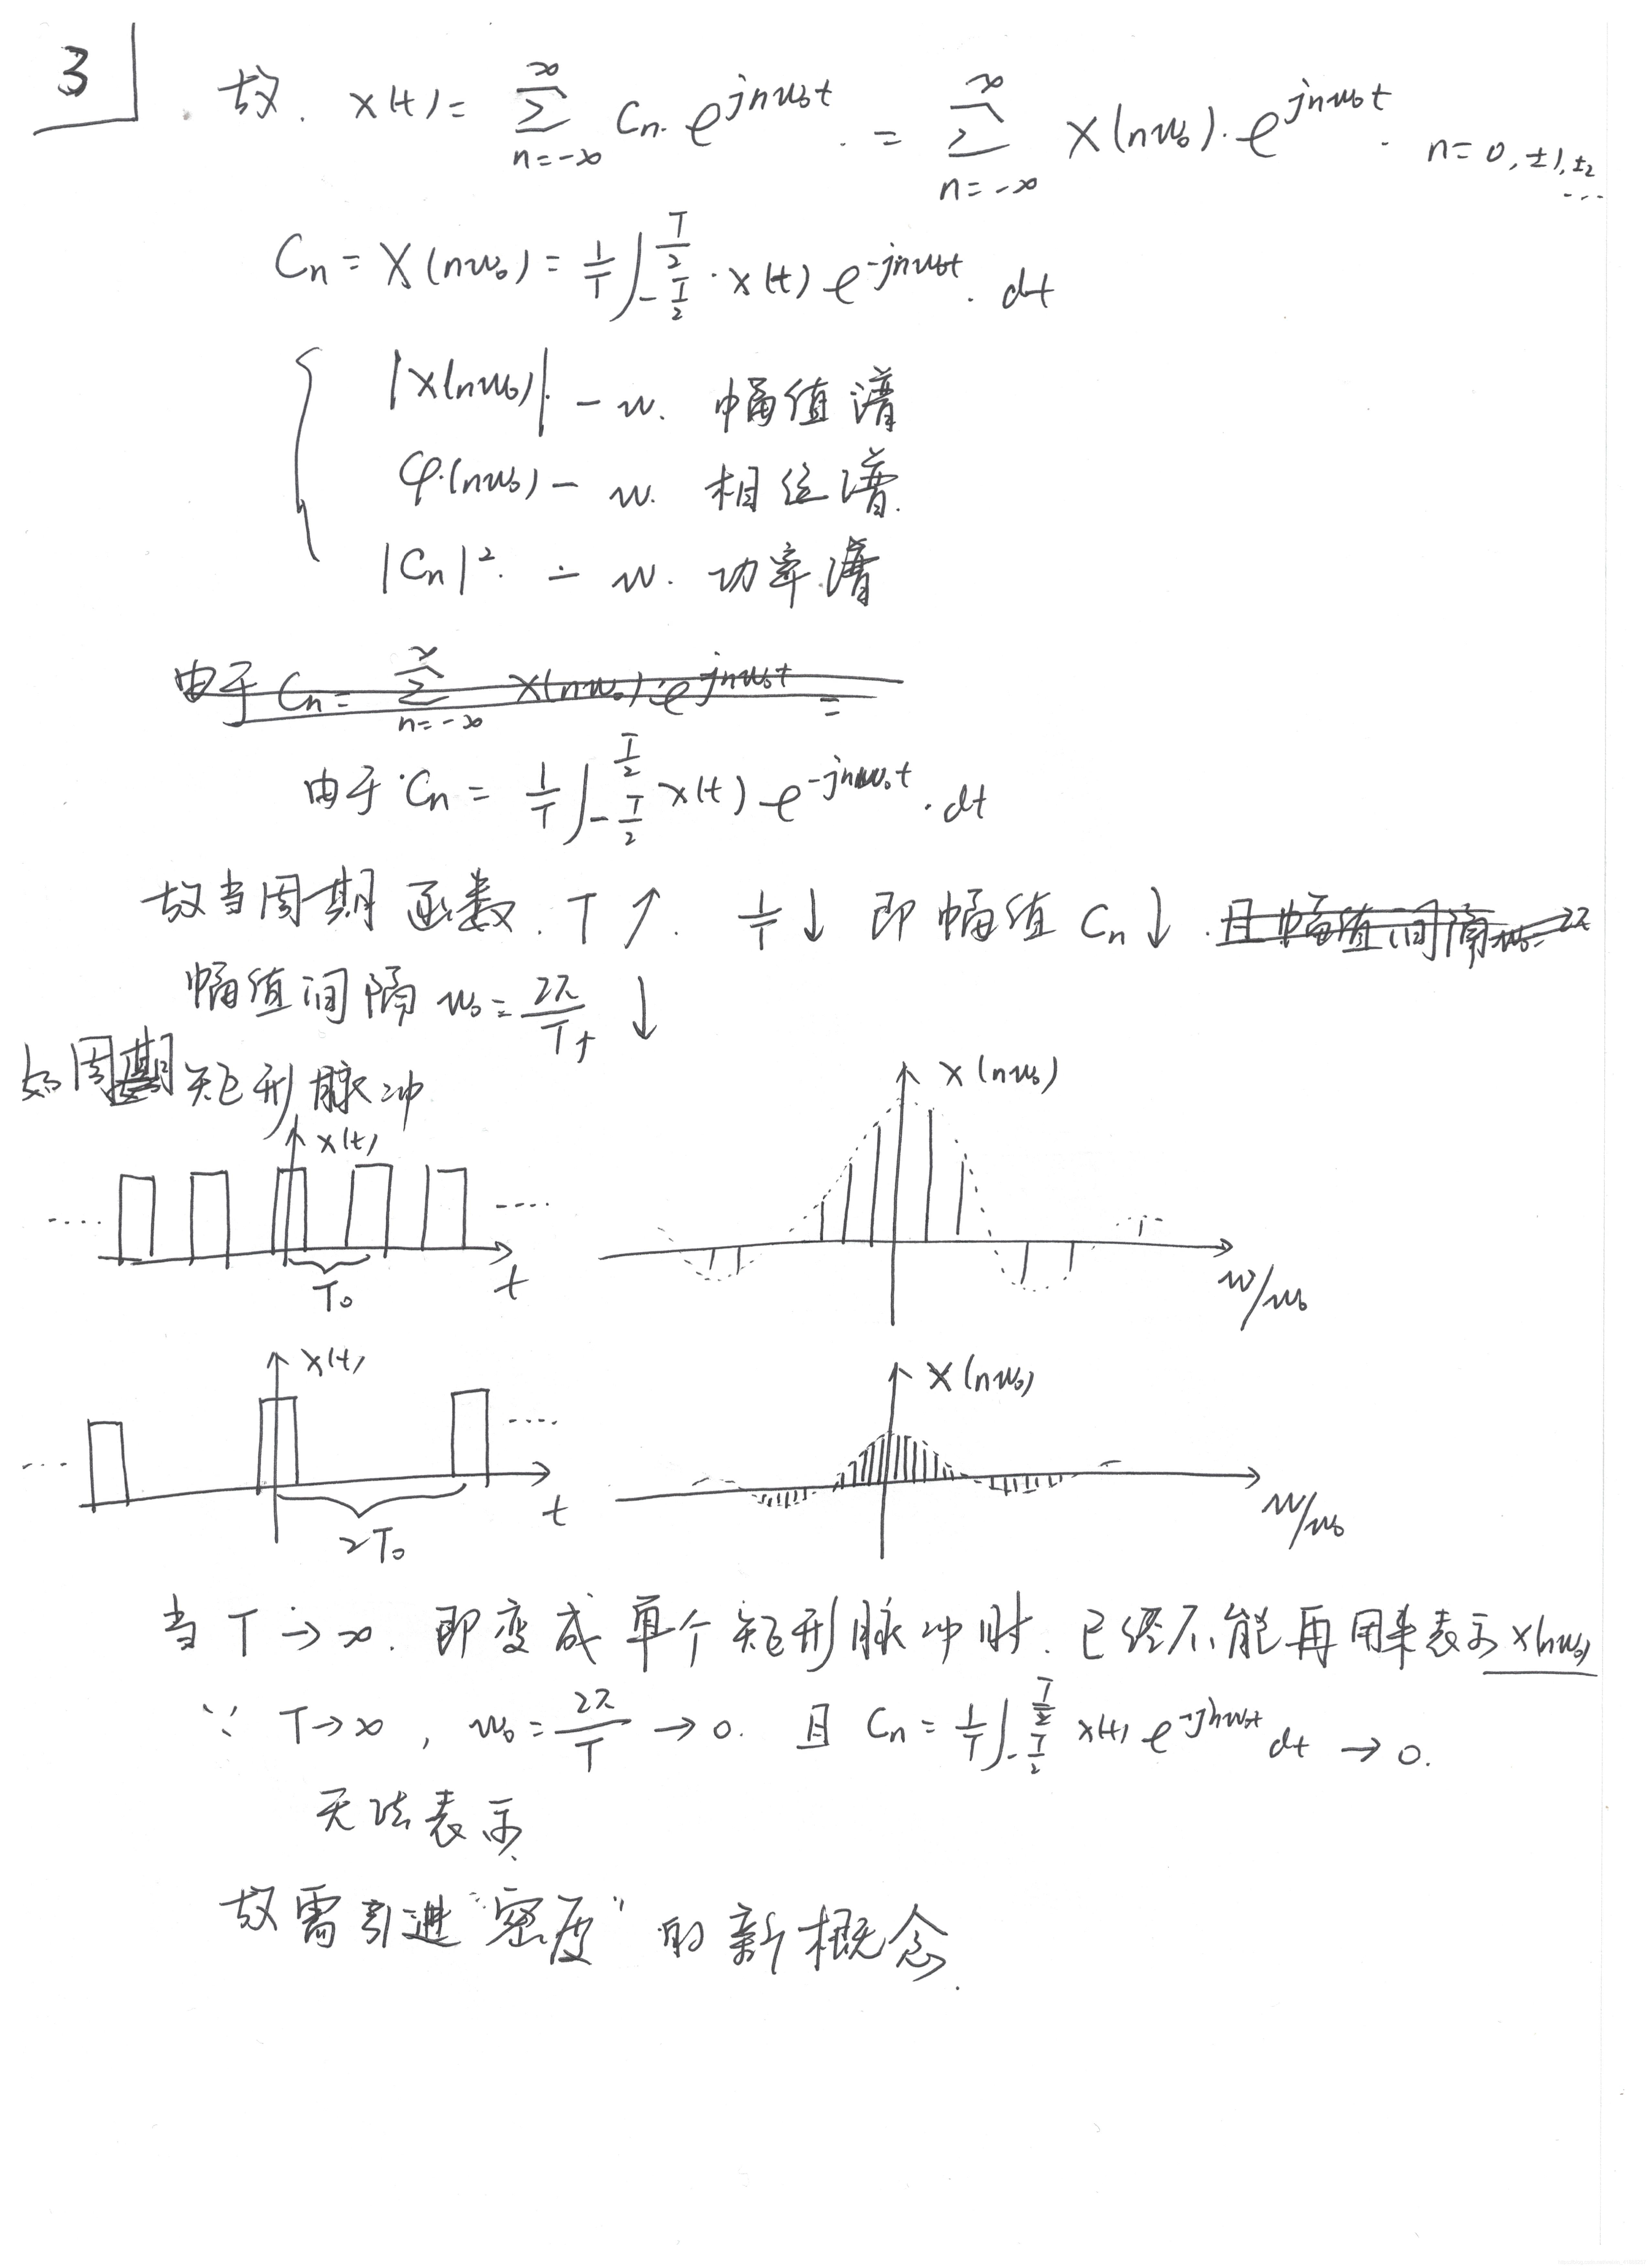 3
故. x(t) = ∑_{n=-∞}^{∞} Cn·e^{jnω₀t} = ∑_{n=-∞}^{∞} X(nω₀)·e^{jnω₀t}. n=0,±1,±2 ...
Cn = X(nω₀) = 1/T ∫_{-T/2}^{T/2} x(t) e^{-jnω₀t}. dt
|X(nω₀)| - ω. 幅值谱
φ(nω₀) - ω. 相位谱.
|Cn|² - ω. 功率谱
由于 Cn = ∑_{n=-∞}^{∞} X(nω₀)·e^{jnω₀t} =
由于 Cn = 1/T ∫_{-T/2}^{T/2} x(t) e^{-jnω₀t}. dt
故当周期函数. T↑. 1/T↓ 即幅值 Cn↓. 且幅值间隔ω₀=2π
幅值间隔 ω₀ = 2π/T↑ ↓
如周期矩形脉冲
x(t)
X(nω₀)
....
....
T₀
t
ω/ω₀
x(t)
X(nω₀)
...
....
2T₀
t
ω/ω₀
当 T→∞. 即变成单个矩形脉冲时. 已经不能再用来表示 X(nω₀)
∵ T→∞, ω₀ = 2π/T → 0. 且 Cn = 1/T ∫_{-T/2}^{T/2} x(t) e^{-jnω₀t} dt → 0.
无法表示.
故需引进“密度”的新概念.